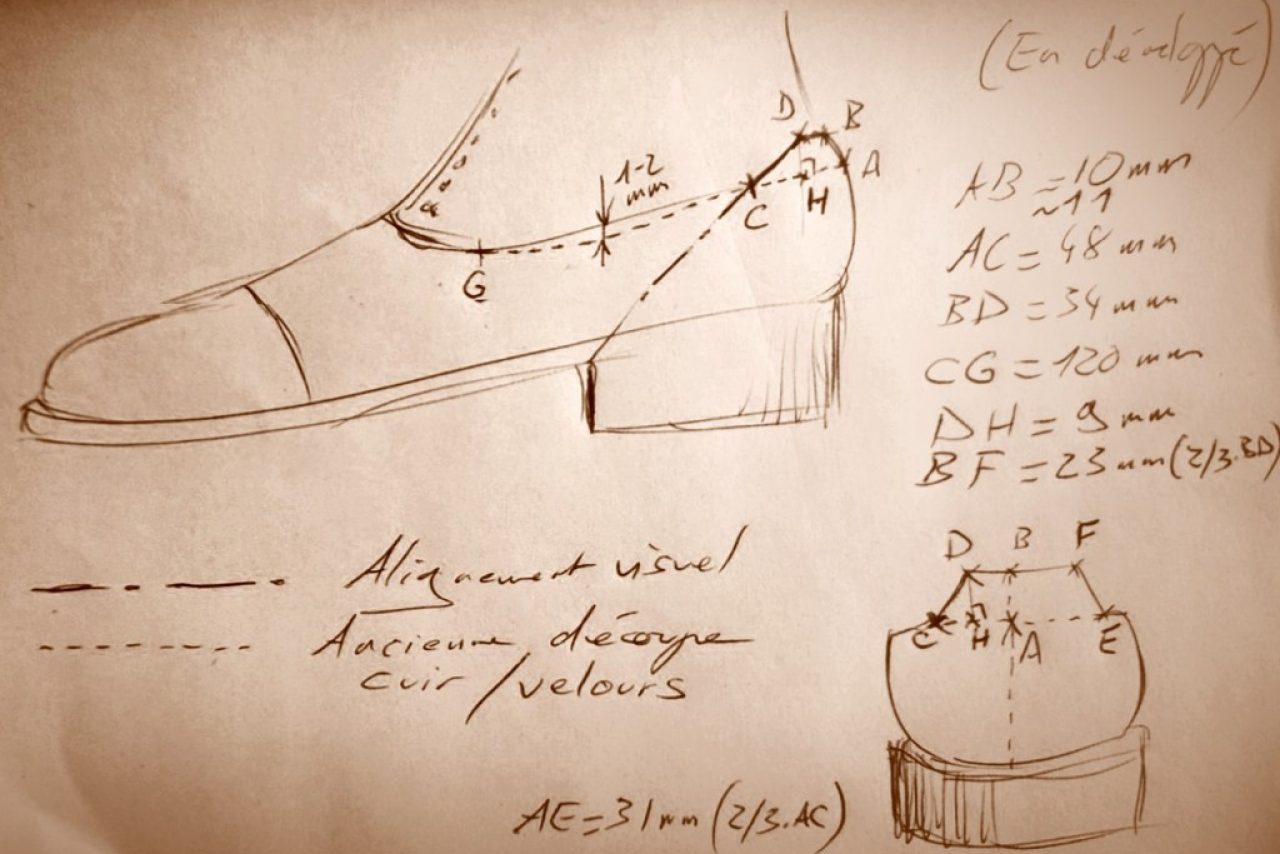 (En développé)
D B
A
H
C
1-2
mm
G
AB ≈ 10 mm
~11
AC = 48 mm
BD = 34 mm
CG = 120 mm
DH = 9 mm
BF = 23 mm (2/3.BD)
D B F
C H A E
Alignement visuel
Ancienne découpe
cuir / velours
AE = 31 mm (2/3.AC)